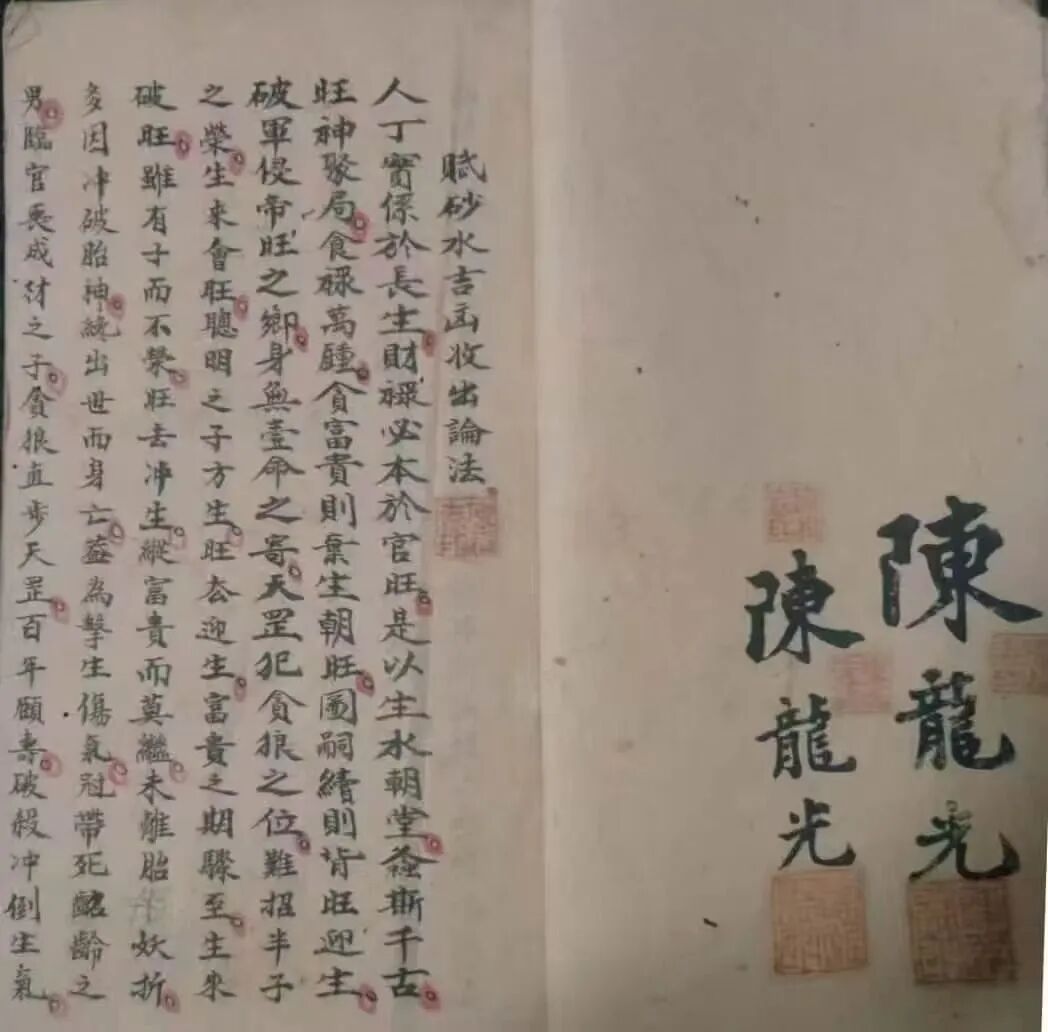 陳龍光
陳龍光
賦砂水吉凶收出論法
人丁實係於長生財祿必本於官旺是以生水朝堂螽斯千古
旺神聚局食祿萬鍾貪富貴則棄生朝旺圖嗣續則背旺迎生
破軍侵帝旺之鄉身無壹命之寄天罡犯貪狼之位難招半子
之榮生來會旺聰明之子方生旺去迎生富貴之期驟至生來
破旺雖有子而不榮旺去冲生縱富貴而莫繼未離胎妖折
多因冲破胎神纔出世而身亡蓋為擊生傷氣冠帶死齠齡之
男臨官喪成材之子貪狼直步天罡百年願壽破殺冲倒生氣